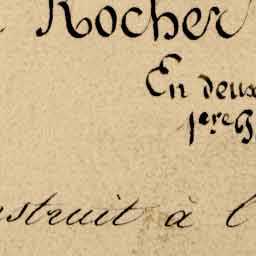 Rocher
En deux
1ère G
nstruit à l